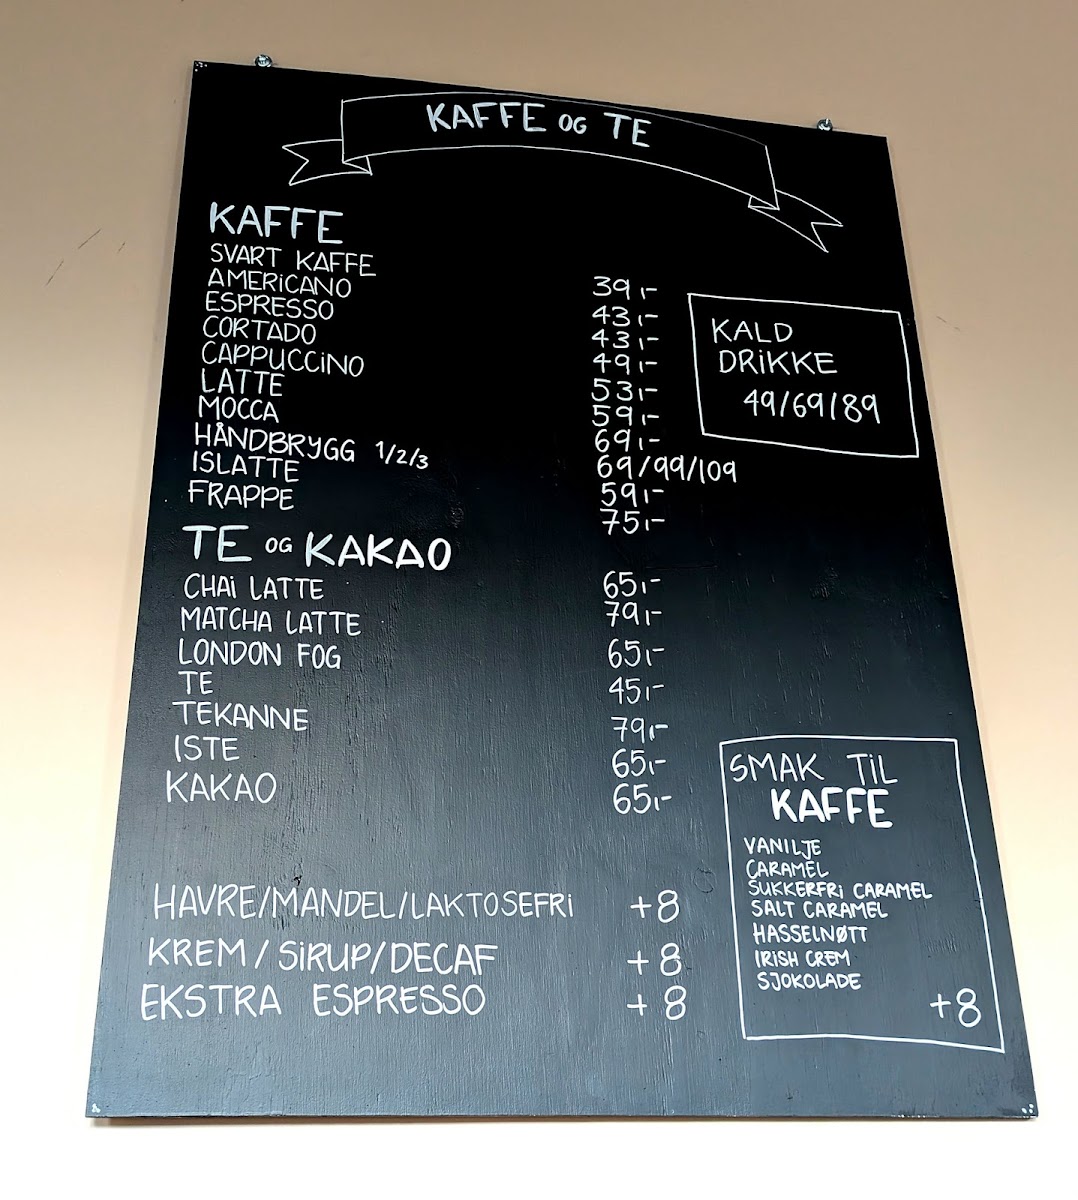 KAFFE OG TE
KAFFE
SVART KAFFE 39,-
AMERICANO 43,-
ESPRESSO 43,-
CORTADO 49,-
CAPPUCCINO 53,-
LATTE 59,-
MOCCA 69,-
HÅNDBRYGG 1/2/3 69/99/109
ISLATTE 59,-
FRAPPE 75,-
KALD
DRIKKE
49/69/89
TE OG KAKAO
CHAI LATTE 65,-
MATCHA LATTE 79,-
LONDON FOG 65,-
TE 45,-
TEKANNE 79,-
ISTE 65,-
KAKAO 65,-
HAVRE/MANDEL/LAKTOSEFRI +8
KREM/SIRUP/DECAF +8
EKSTRA ESPRESSO +8
SMAK TIL
KAFFE
VANILJE
CARAMEL
SUKKERFRI CARAMEL
SALT CARAMEL
HASSELNØTT
IRISH CREM
SJOKOLADE
+8